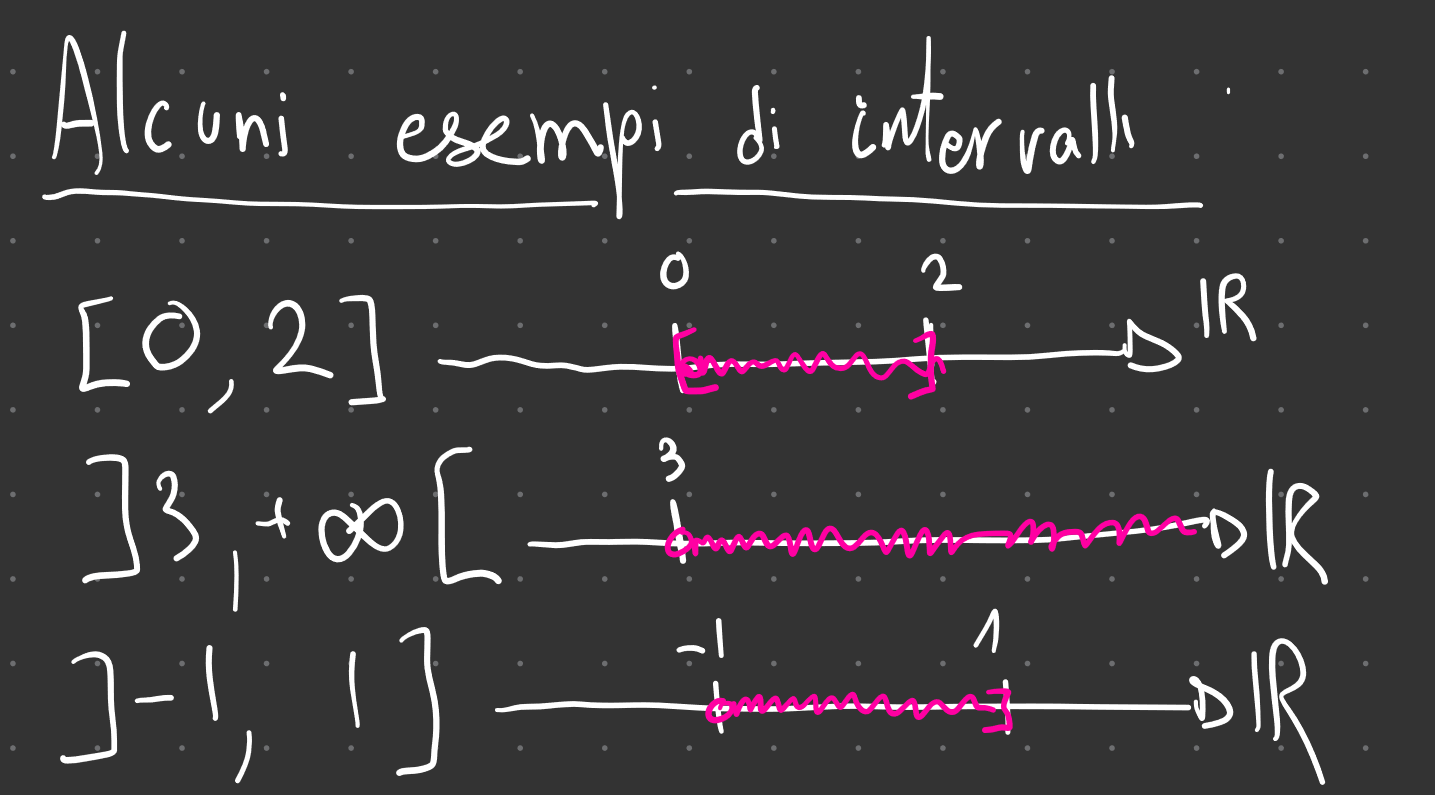 Alcuni esempi di intervalli
0 2
[0, 2] ℝ
3
]3, +∞[ ℝ
-1 1
]-1, 1] ℝ